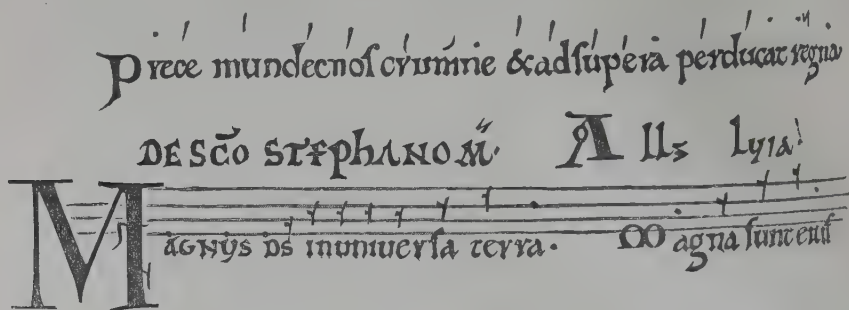 Prece mundetnoſ crimine &adſupera perducat regna
DE SCŌ STEPHANO M̄. All lyia
MAGNUS DS inuniuerſa terra. Magna ſunt eiuſ